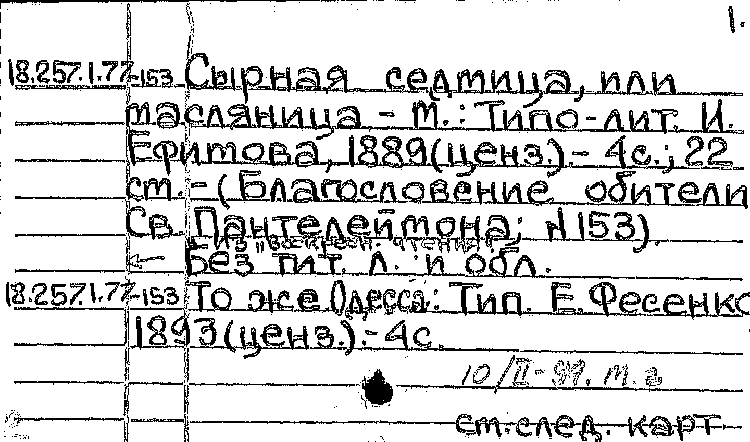 1.
18.257.1.77-153 Сырная седмица, или
масляница - М.: Типо-лит. И.
Ефимова, 1889(ценз.).- 4с.; 22
ст.-(Благословение обители
Св. Пантелеймона; N153).
Из "Воскресн. чтения"
← Без тит. л. и обл.
18.257.1.77-153 То же Одесса: Тип. Е. Фесенко
1893(ценз.).-4с.
10/II- м.г
см.след. карт